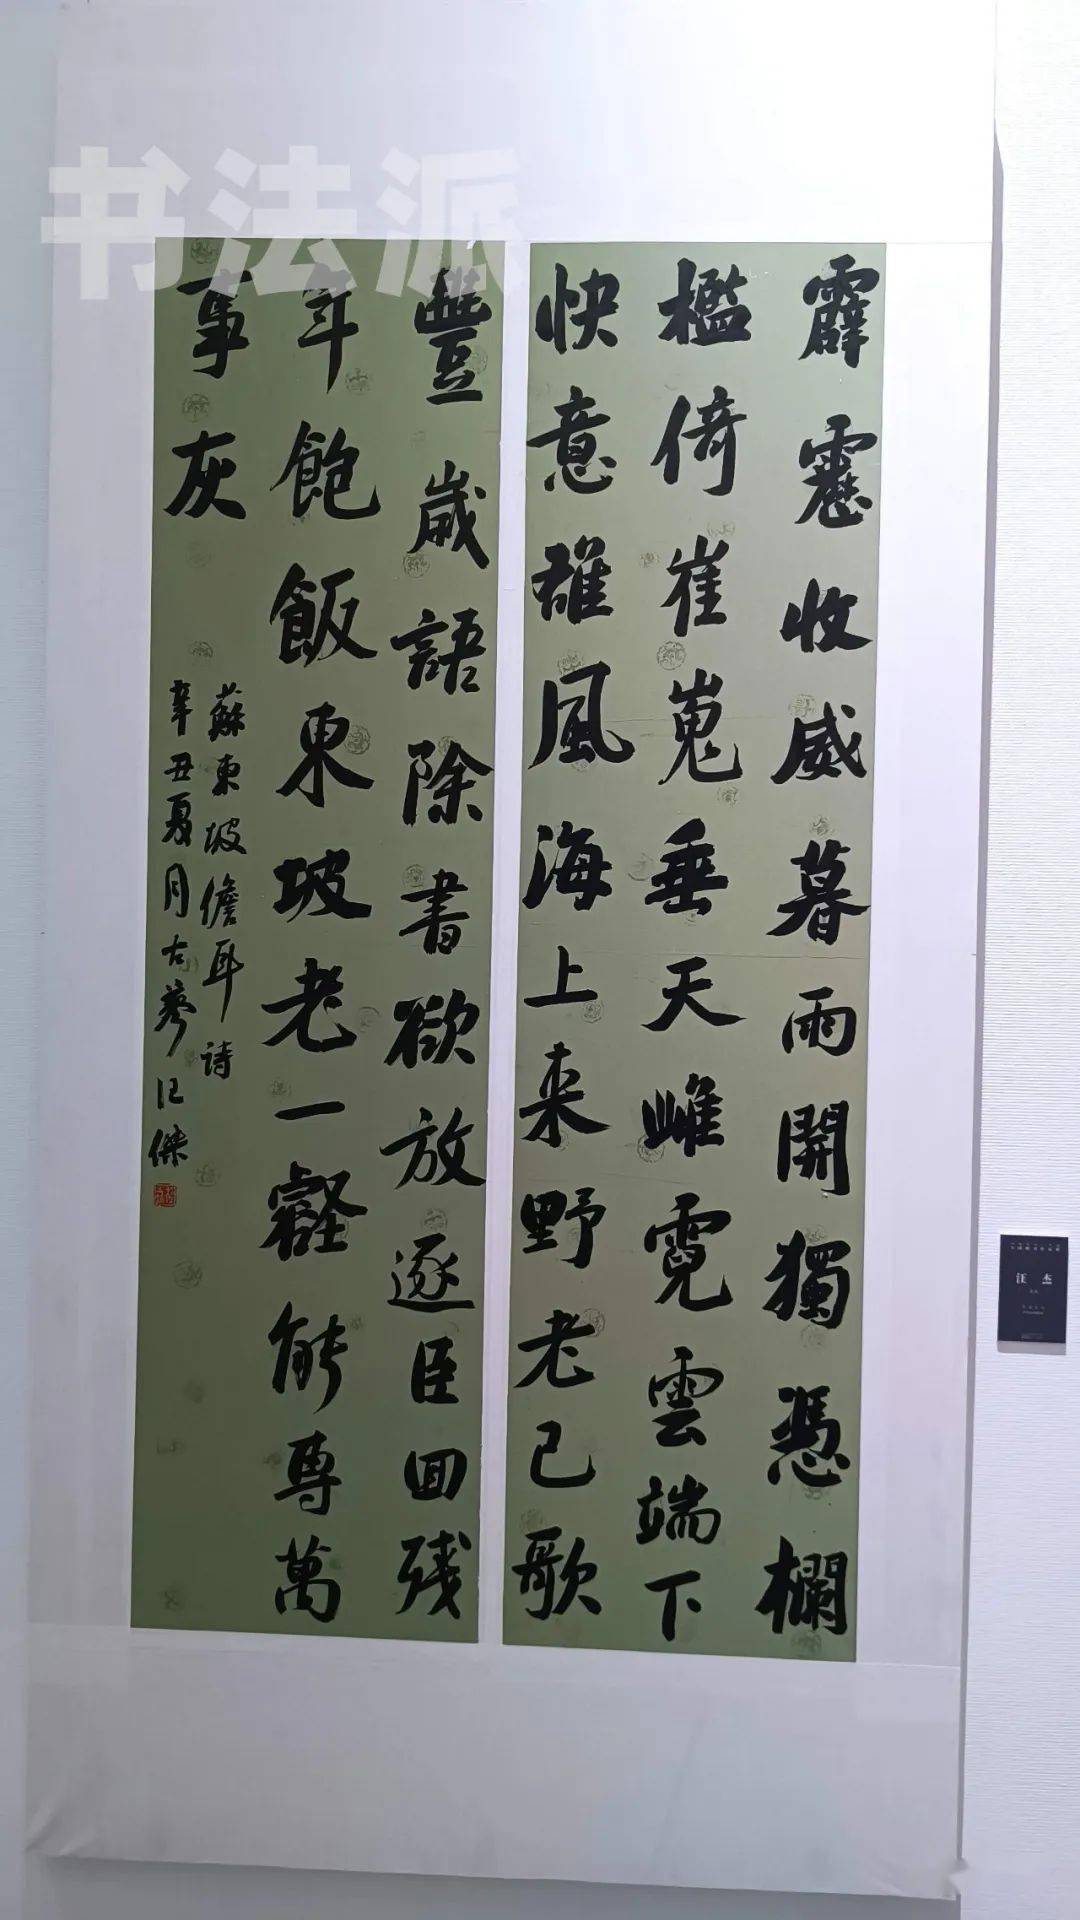 书法派
霹靂收威暮雨開獨憑欄
檻倚崔嵬垂天雌霓雲端下
快意雄風海上来野老已歌
豐歲語除書欲放逐臣回残
年飽飯東坡老一壑能専萬
事灰
蘇東坡儋耳詩
辛丑夏月古蓼汪傑
汪 杰